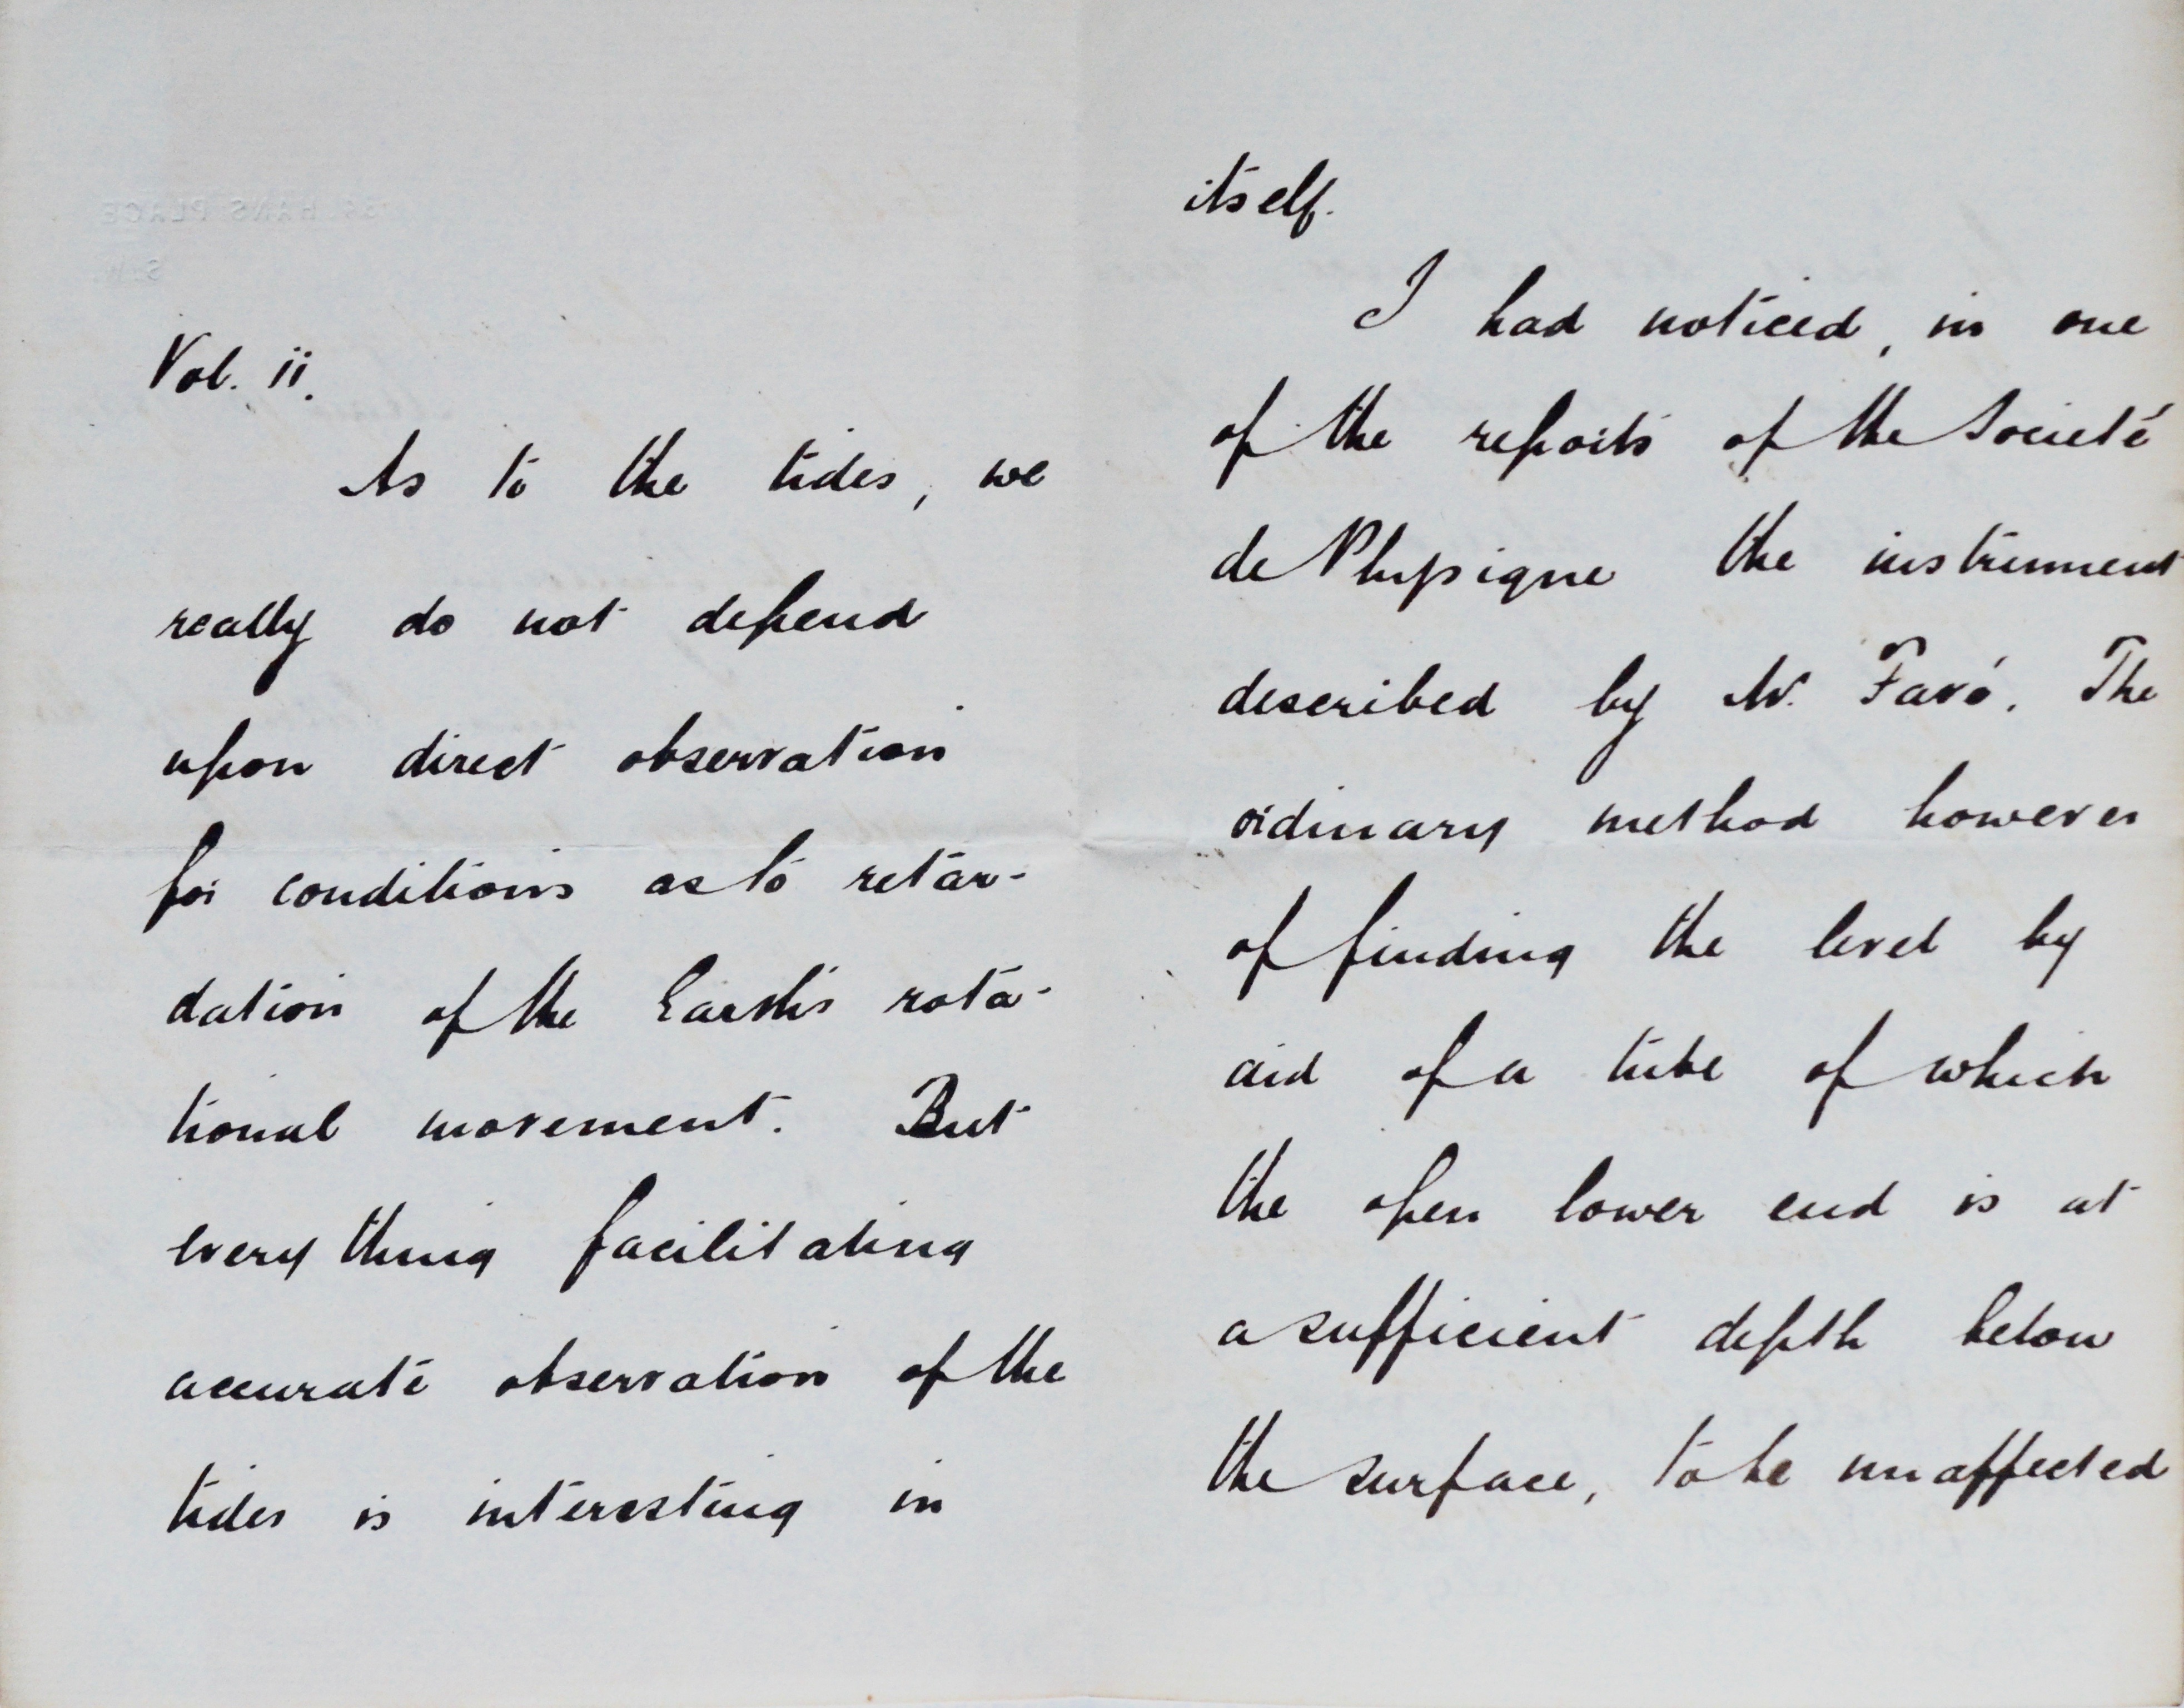 34 HANS PLACE
S.W.
Vol. ii.
As to the tides, we
really do not depend
upon direct observation
for conditions as to retar-
dation of the Earth's rota-
tional movement. But
every thing facilitating
accurate observation of the
tides is interesting in
itself.
I had noticed, in one
of the reports of the Societé
de Physique the instrument
described by M. Favé. The
ordinary method however
of finding the level by
aid of a tube of which
the open lower end is at
a sufficient depth below
the surface, to be unaffected